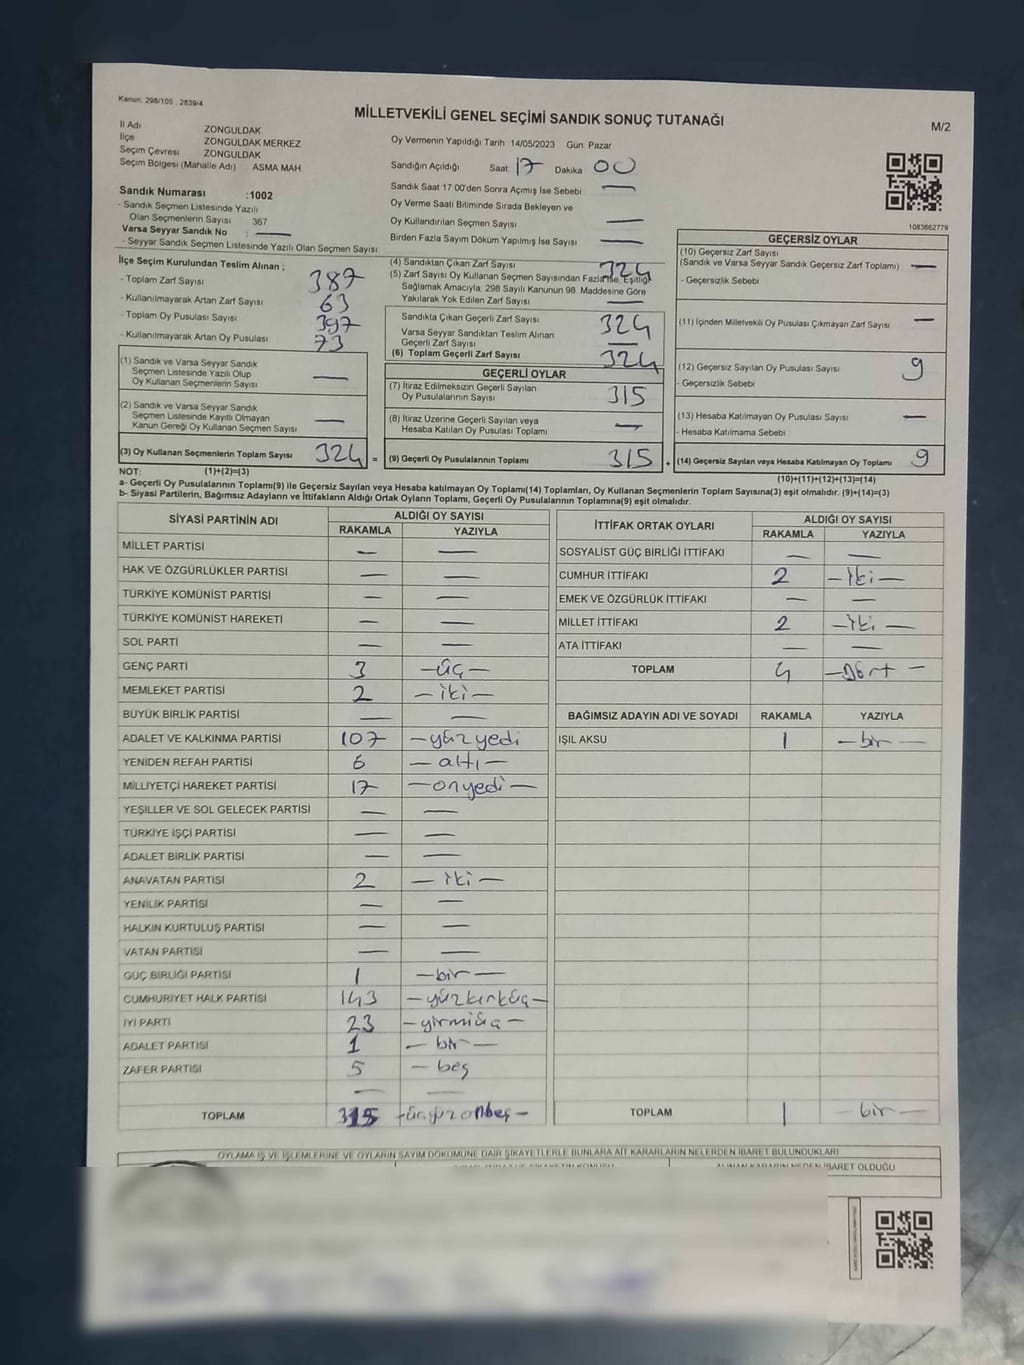 Kanun: 298/105 . 2839/4
MİLLETVEKİLİ GENEL SEÇİMİ SANDIK SONUÇ TUTANAĞI
M/2
İl Adı ZONGULDAK
İlçe ZONGULDAK MERKEZ
Seçim Çevresi ZONGULDAK
Seçim Bölgesi (Mahalle Adı) ASMA MAH.
Sandık Numarası :1002
- Sandık Seçmen Listesinde Yazılı
Olan Seçmenlerin Sayısı 367
Varsa Seyyar Sandık No : —
- Seyyar Sandık Seçmen Listesinde Yazılı Olan Seçmen Sayısı
Oy Vermenin Yapıldığı Tarih 14/05/2023 Gün: Pazar
Sandığın Açıldığı Saat 17 Dakika 00
Sandık Saat 17 00'den Sonra Açımış İse Sebebi —
Oy Verme Saati Bitiminde Sırada Bekleyen ve
Oy Kullandırılan Seçmen Sayısı —
Birden Fazla Sayım Döküm Yapılmış İse Sayısı —
1083662779
İlçe Seçim Kurulundan Teslim Alınan ;
- Toplam Zarf Sayısı 387
- Kullanılmayarak Artan Zarf Sayısı 63
- Toplam Oy Pusulası Sayısı 397
- Kullanılmayarak Artan Oy Pusulası 73
(1) Sandık ve Varsa Seyyar Sandık
Seçmen Listesinde Yazılı Olup
Oy Kullanan Seçmenlerin Sayısı —
(2) Sandık ve Varsa Seyyar Sandık
Seçmen Listesinde Kayıtlı Olmayan
Kanun Gereği Oy Kullanan Seçmen Sayısı —
(3) Oy Kullanan Seçmenlerin Toplam Sayısı 324 =
(4) Sandıktan Çıkan Zarf Sayısı 324
(5) Zarf Sayısı Oy Kullanan Seçmen Sayısından Fazla İse, Eşitliği
Sağlamak Amacıyla, 298 Sayılı Kanunun 98. Maddesine Göre
Yakılarak Yok Edilen Zarf Sayısı —
Sandıkta Çıkan Geçerli Zarf Sayısı 324
Varsa Seyyar Sandıktan Teslim Alınan
Geçerli Zarf Sayısı —
(6) Toplam Geçerli Zarf Sayısı 324
GEÇERLİ OYLAR
(7) İtiraz Edilmeksizin Geçerli Sayılan
Oy Pusulalarının Sayısı 315
(8) İtiraz Üzerine Geçerli Sayılan veya
Hesaba Katılan Oy Pusulası Toplamı —
(9) Geçerli Oy Pusulalarının Toplamı 315 +
GEÇERSİZ OYLAR
(10) Geçersiz Zarf Sayısı
(Sandık ve Varsa Seyyar Sandık Geçersiz Zarf Toplamı) —
- Geçersizlik Sebebi
(11) İçinden Milletvekili Oy Pusulası Çıkmayan Zarf Sayısı —
(12) Geçersiz Sayılan Oy Pusulası Sayısı 9
- Geçersizlik Sebebi
(13) Hesaba Katılmayan Oy Pusulası Sayısı —
- Hesaba Katılmama Sebebi
(14) Geçersiz Sayılan veya Hesaba Katılmayan Oy Toplamı 9
NOT: (1)+(2)=(3) (10)+(11)+(12)+(13)=(14)
a- Geçerli Oy Pusulalarının Toplamı(9) ile Geçersiz Sayılan veya Hesaba katılmayan Oy Toplamı(14) Toplamları, Oy Kullanan Seçmenlerin Toplam Sayısına(3) eşit olmalıdır. (9)+(14)=(3)
b- Siyasi Partilerin, Bağımsız Adayların ve İttifakların Aldığı Ortak Oyların Toplamı, Geçerli Oy Pusulalarının Toplamına(9) eşit olmalıdır.
SİYASİ PARTİNİN ADI ALDIĞI OY SAYISI
RAKAMLA YAZIYLA
MİLLET PARTİSİ — —
HAK VE ÖZGÜRLÜKLER PARTİSİ — —
TÜRKİYE KOMÜNİST PARTİSİ — —
TÜRKİYE KOMÜNİST HAREKETİ — —
SOL PARTİ — —
GENÇ PARTİ 3 —üç—
MEMLEKET PARTİSİ 2 —iki—
BÜYÜK BİRLİK PARTİSİ — —
ADALET VE KALKINMA PARTİSİ 107 —yüzyedi
YENİDEN REFAH PARTİSİ 6 —altı—
MİLLİYETÇİ HAREKET PARTİSİ 17 —onyedi—
YEŞİLLER VE SOL GELECEK PARTİSİ — —
TÜRKİYE İŞÇİ PARTİSİ — —
ADALET BİRLİK PARTİSİ — —
ANAVATAN PARTİSİ 2 —iki—
YENİLİK PARTİSİ — —
HALKIN KURTULUŞ PARTİSİ — —
VATAN PARTİSİ — —
GÜÇ BİRLİĞİ PARTİSİ 1 —bir—
CUMHURİYET HALK PARTİSİ 143 —yüzkırküç—
İYİ PARTİ 23 —yirmiüç—
ADALET PARTİSİ 1 —bir—
ZAFER PARTİSİ 5 —beş
— —
TOPLAM 315 —üçyüzonbeş—
İTTİFAK ORTAK OYLARI ALDIĞI OY SAYISI
RAKAMLA YAZIYLA
SOSYALİST GÜÇ BİRLİĞİ İTTİFAKI — —
CUMHUR İTTİFAKI 2 —iki—
EMEK VE ÖZGÜRLÜK İTTİFAKI — —
MİLLET İTTİFAKI 2 —iki—
ATA İTTİFAKI — —
TOPLAM 4 —Dört—
BAĞIMSIZ ADAYIN ADI VE SOYADI RAKAMLA YAZIYLA
IŞIL AKSU 1 —bir—
TOPLAM 1 —bir—
OYLAMA İŞ VE İŞLEMLERİNE VE OYLARIN SAYIM DÖKÜMÜNE DAİR ŞİKAYETLERLE BUNLARA AİT KARARLARIN NELERDEN İBARET BULUNDUKLARI
ALINAN KARARIN NEDEN İBARET OLDUĞU